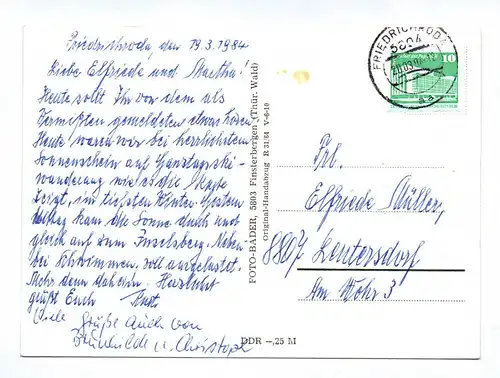 Friedrichroda, den 19.3.1984
Liebe Elfriede und Martha!
Heute sollt Ihr von dem als
Vermißten gemeldeten etwas hören
Heute waren wir bei herrlichstem
Sonnenschein auf Ganztagsski-
wanderung wie es die Karte
zeigt, im tiefsten Winter. Gestern
Mittag kam die Sonne durch und
gleich auf zum Inselsberg. Neben-
bei Schwimmen, voll ausgelastet.
Mehr dann daheim. Herzlichst
grüßt Euch Kurt
Viele Grüße auch von
Brunhilde u. Christoph
FOTO-BADER, 5803 Finsterbergen (Thür. Wald)
Original-Handabzug R 31/84 1-6-10
DDR -,25 M
FRIEDRICHRODA
5804
20.03.84
aa
10
Elfriede Müller,
8807 Leutersdorf
Am Wohr 3